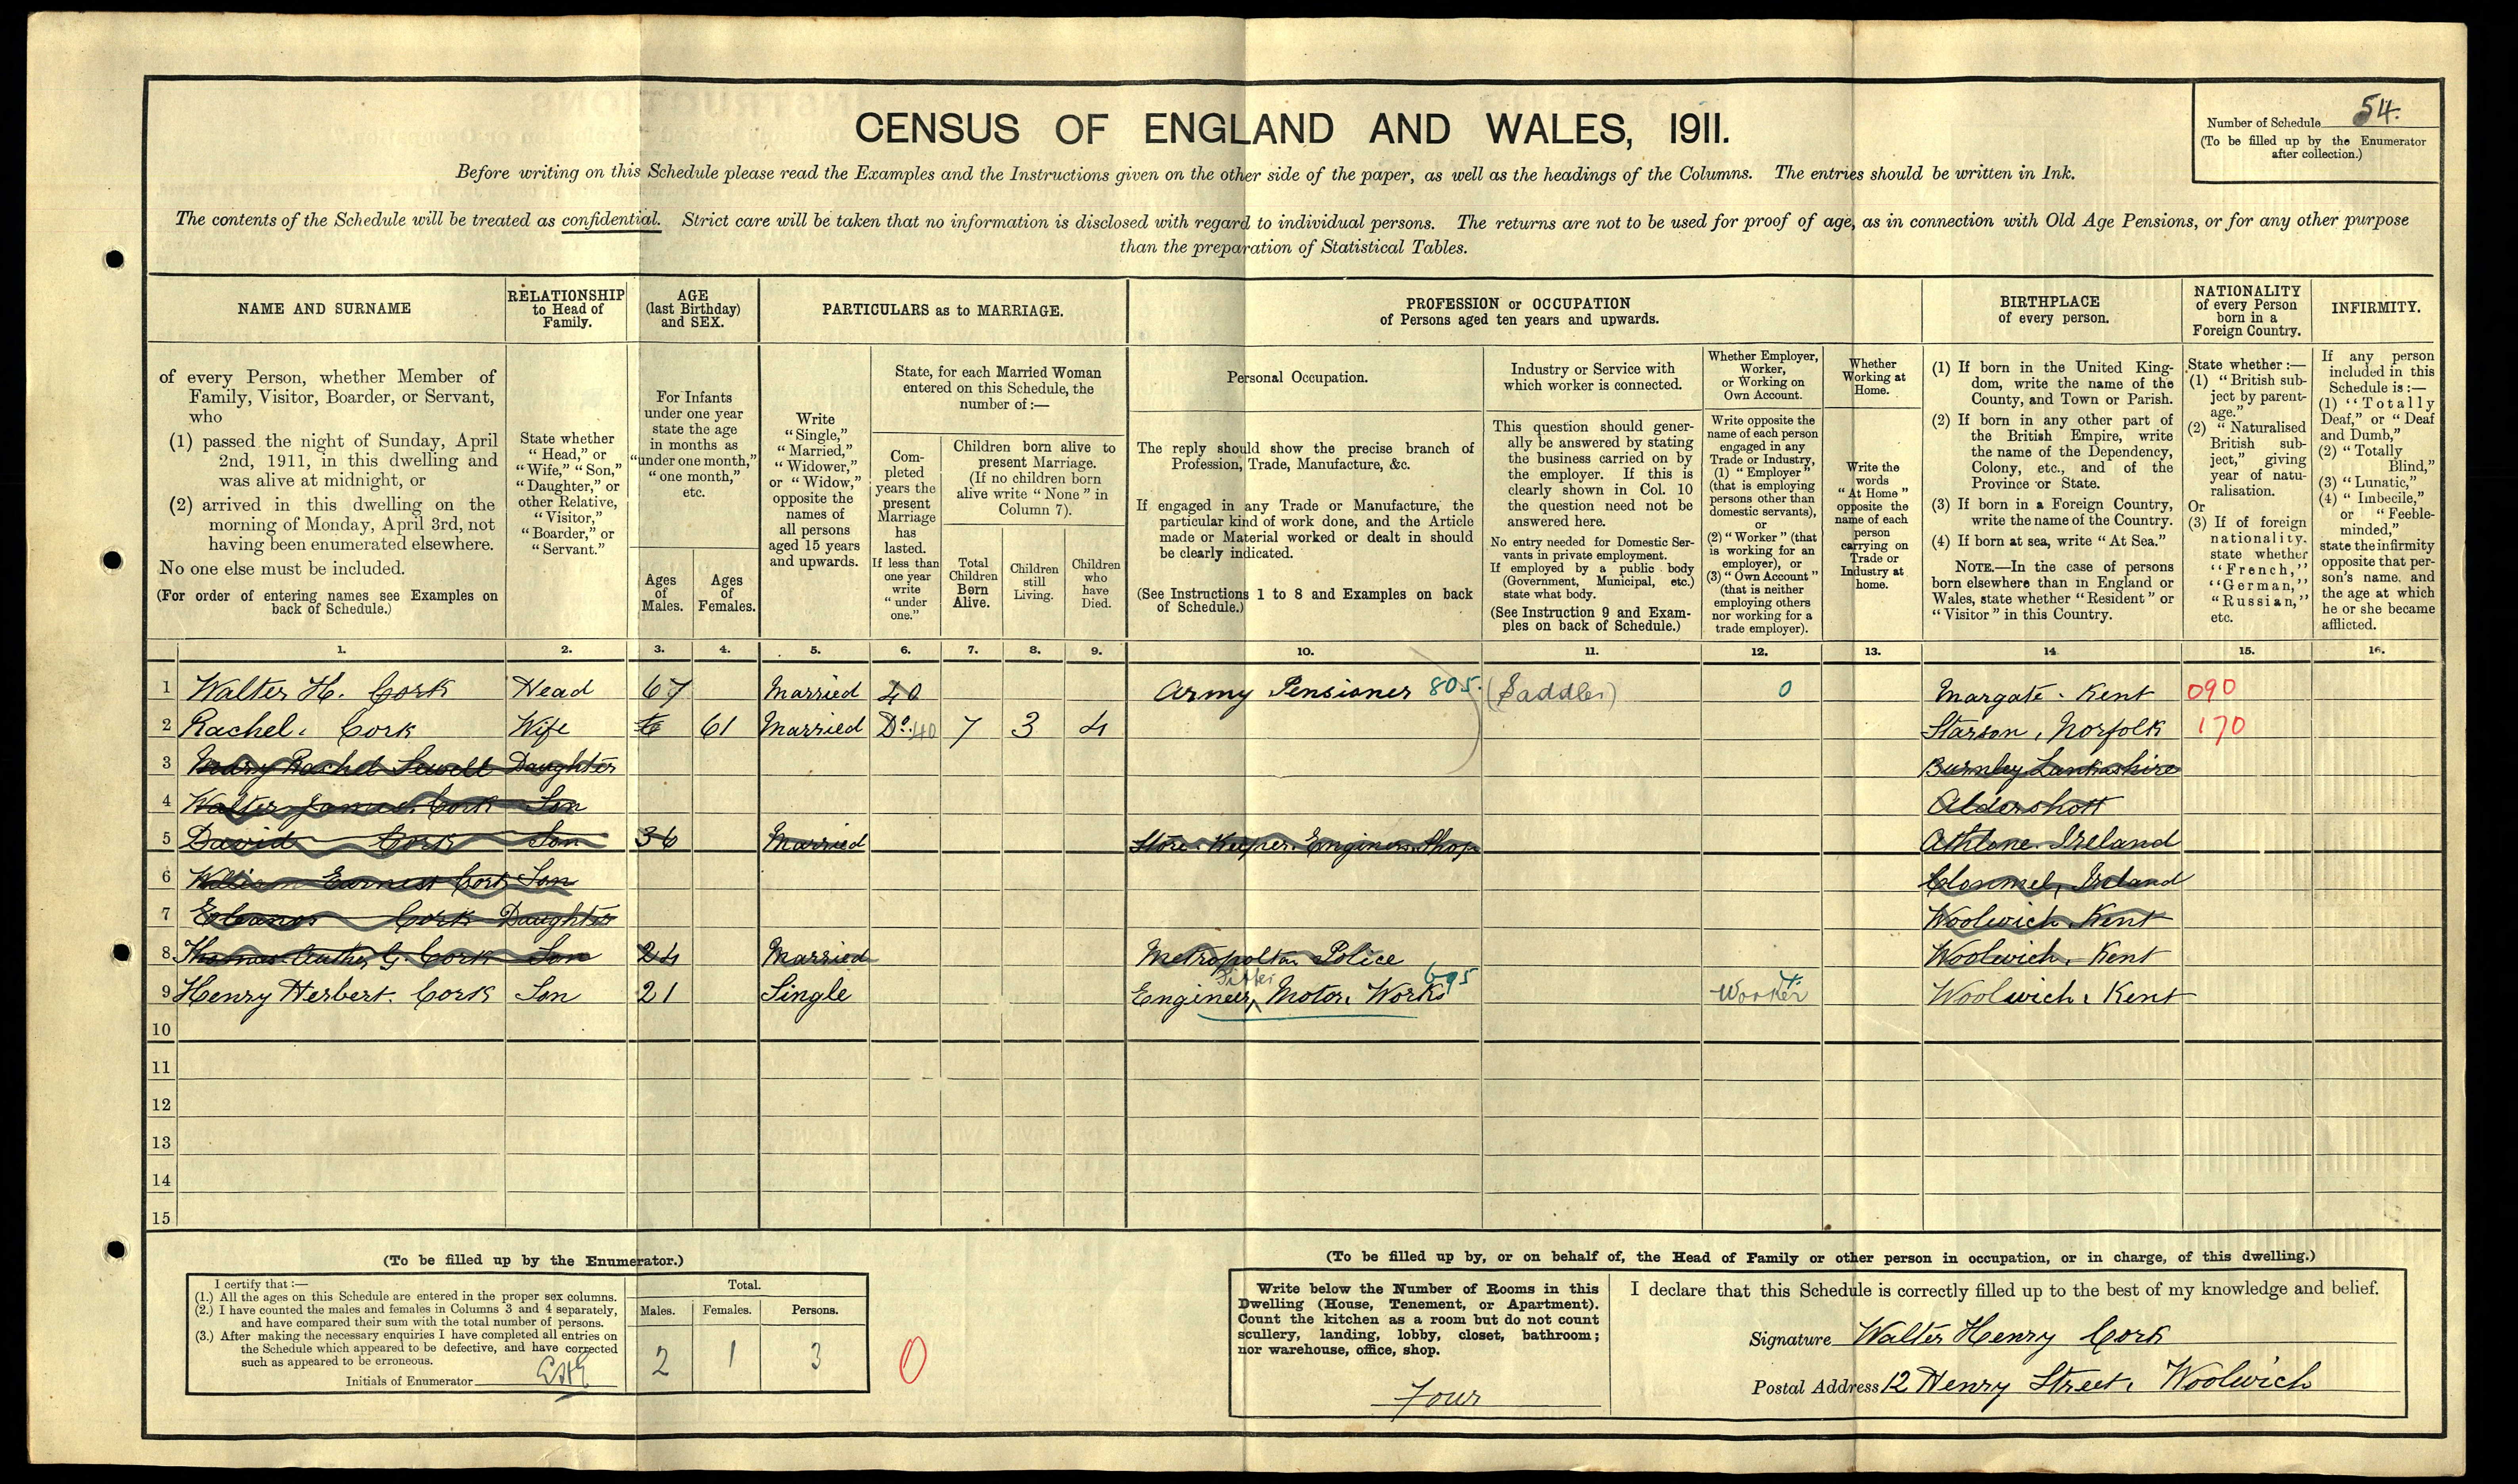 CENSUS OF ENGLAND AND WALES, 1911.
Number of Schedule 54.
(To be filled up by the Enumerator
after collection.)
Before writing on this Schedule please read the Examples and the Instructions given on the other side of the paper, as well as the headings of the Columns. The entries should be written in Ink.
The contents of the Schedule will be treated as confidential. Strict care will be taken that no information is disclosed with regard to individual persons. The returns are not to be used for proof of age, as in connection with Old Age Pensions, or for any other purpose
than the preparation of Statistical Tables.
NAME AND SURNAME
of every Person, whether Member of
Family, Visitor, Boarder, or Servant,
who
(1) passed the night of Sunday, April
2nd, 1911, in this dwelling and
was alive at midnight, or
(2) arrived in this dwelling on the
morning of Monday, April 3rd, not
having been enumerated elsewhere.
No one else must be included.
(For order of entering names see Examples on
back of Schedule.)
RELATIONSHIP
to Head of
Family.
State whether
"Head," or
"Wife," "Son,"
"Daughter," or
other Relative,
"Visitor,"
"Boarder," or
"Servant."
AGE
(last Birthday)
and SEX.
For Infants
under one year
state the age
in months as
"under one month,"
"one month,"
etc.
Ages
of
Males.
Ages
of
Females.
PARTICULARS as to MARRIAGE.
Write
"Single,"
"Married,"
"Widower,"
or "Widow,"
opposite the
names of
all persons
aged 15 years
and upwards.
State, for each Married Woman
entered on this Schedule, the
number of:—
Com-
pleted
years the
present
Marriage
has
lasted.
If less than
one year
write
"under
one."
Children born alive to
present Marriage.
(If no children born
alive write "None" in
Column 7).
Total
Children
Born
Alive.
Children
still
Living.
Children
who
have
Died.
PROFESSION or OCCUPATION
of Persons aged ten years and upwards.
Personal Occupation.
The reply should show the precise branch of
Profession, Trade, Manufacture, &c.
If engaged in any Trade or Manufacture, the
particular kind of work done, and the Article
made or Material worked or dealt in should
be clearly indicated.
(See Instructions 1 to 8 and Examples on back
of Schedule.)
Industry or Service with
which worker is connected.
This question should gener-
ally be answered by stating
the business carried on by
the employer. If this is
clearly shown in Col. 10
the question need not be
answered here.
No entry needed for Domestic Ser-
vants in private employment.
If employed by a public body
(Government, Municipal, etc.)
state what body.
(See Instruction 9 and Exam-
ples on back of Schedule.)
Whether Employer,
Worker,
or Working on
Own Account.
Write opposite the
name of each person
engaged in any
Trade or Industry,
(1) "Employer"
(that is employing
persons other than
domestic servants),
or
(2) "Worker" (that
is working for an
employer), or
(3) "Own Account"
(that is neither
employing others
nor working for a
trade employer).
Whether
Working at
Home.
Write the
words
"At Home"
opposite the
name of each
person
carrying on
Trade or
Industry at
home.
BIRTHPLACE
of every person.
(1) If born in the United King-
dom, write the name of the
County, and Town or Parish.
(2) If born in any other part of
the British Empire, write
the name of the Dependency,
Colony, etc., and of the
Province or State.
(3) If born in a Foreign Country,
write the name of the Country.
(4) If born at sea, write "At Sea."
NOTE.—In the case of persons
born elsewhere than in England or
Wales, state whether "Resident" or
"Visitor" in this Country.
NATIONALITY
of every Person
born in a
Foreign Country.
State whether:—
(1) "British sub-
ject by parent-
age."
(2) "Naturalised
British sub-
ject," giving
year of natu-
ralisation.
Or
(3) If of foreign
nationality,
state whether
"French,"
"German,"
"Russian,"
etc.
INFIRMITY.
If any person
included in this
Schedule is:—
(1) "Totally
Deaf," or "Deaf
and Dumb,"
(2) "Totally
Blind,"
(3) "Lunatic,"
(4) "Imbecile,"
or "Feeble-
minded,"
state the infirmity
opposite that per-
son's name, and
the age at which
he or she became
afflicted.
1. 2. 3. 4. 5. 6. 7. 8. 9. 10. 11. 12. 13. 14 15. 16.
1 Walter H. Cork Head 67 Married 40 Army Pensioner 805. (Saddler) 0 Margate. Kent 090
2 Rachel. Cork Wife 61 Married Do. 40 7 3 4 Starson, Norfolk 170
3 Mary Rachel Sewell Daughter Burnley Lankashire
4 Walter James. Cork Son Aldershott
5 David Cork Son 36 Married Store. Keeper. Engineers Shop Athlone. Ireland
6 William Earnest Cork Son Clonmel, Ireland
7 Eleanor Cork Daughter Woolwich. Kent
8 Thomas. Arther G. Cork Son 24 Married Metropoltan Police Woolwich. Kent
9 Henry Herbert. Cork Son 21 Single Engineer, Fitter Motor. Works 695 Worker 4. Woolwich. Kent
10
11
12
13
14
15
(To be filled up by the Enumerator.)
I certify that:—
(1.) All the ages on this Schedule are entered in the proper sex columns.
(2.) I have counted the males and females in Columns 3 and 4 separately,
and have compared their sum with the total number of persons.
(3.) After making the necessary enquiries I have completed all entries on
the Schedule which appeared to be defective, and have corrected
such as appeared to be erroneous.
Initials of Enumerator
Total.
Males. Females. Persons.
2 1 3
0
(To be filled up by, or on behalf of, the Head of Family or other person in occupation, or in charge, of this dwelling.)
Write below the Number of Rooms in this
Dwelling (House, Tenement, or Apartment).
Count the kitchen as a room but do not count
scullery, landing, lobby, closet, bathroom;
nor warehouse, office, shop.
Four
I declare that this Schedule is correctly filled up to the best of my knowledge and belief.
Signature Walter Henry Cork
Postal Address 12 Henry Street, Woolwich